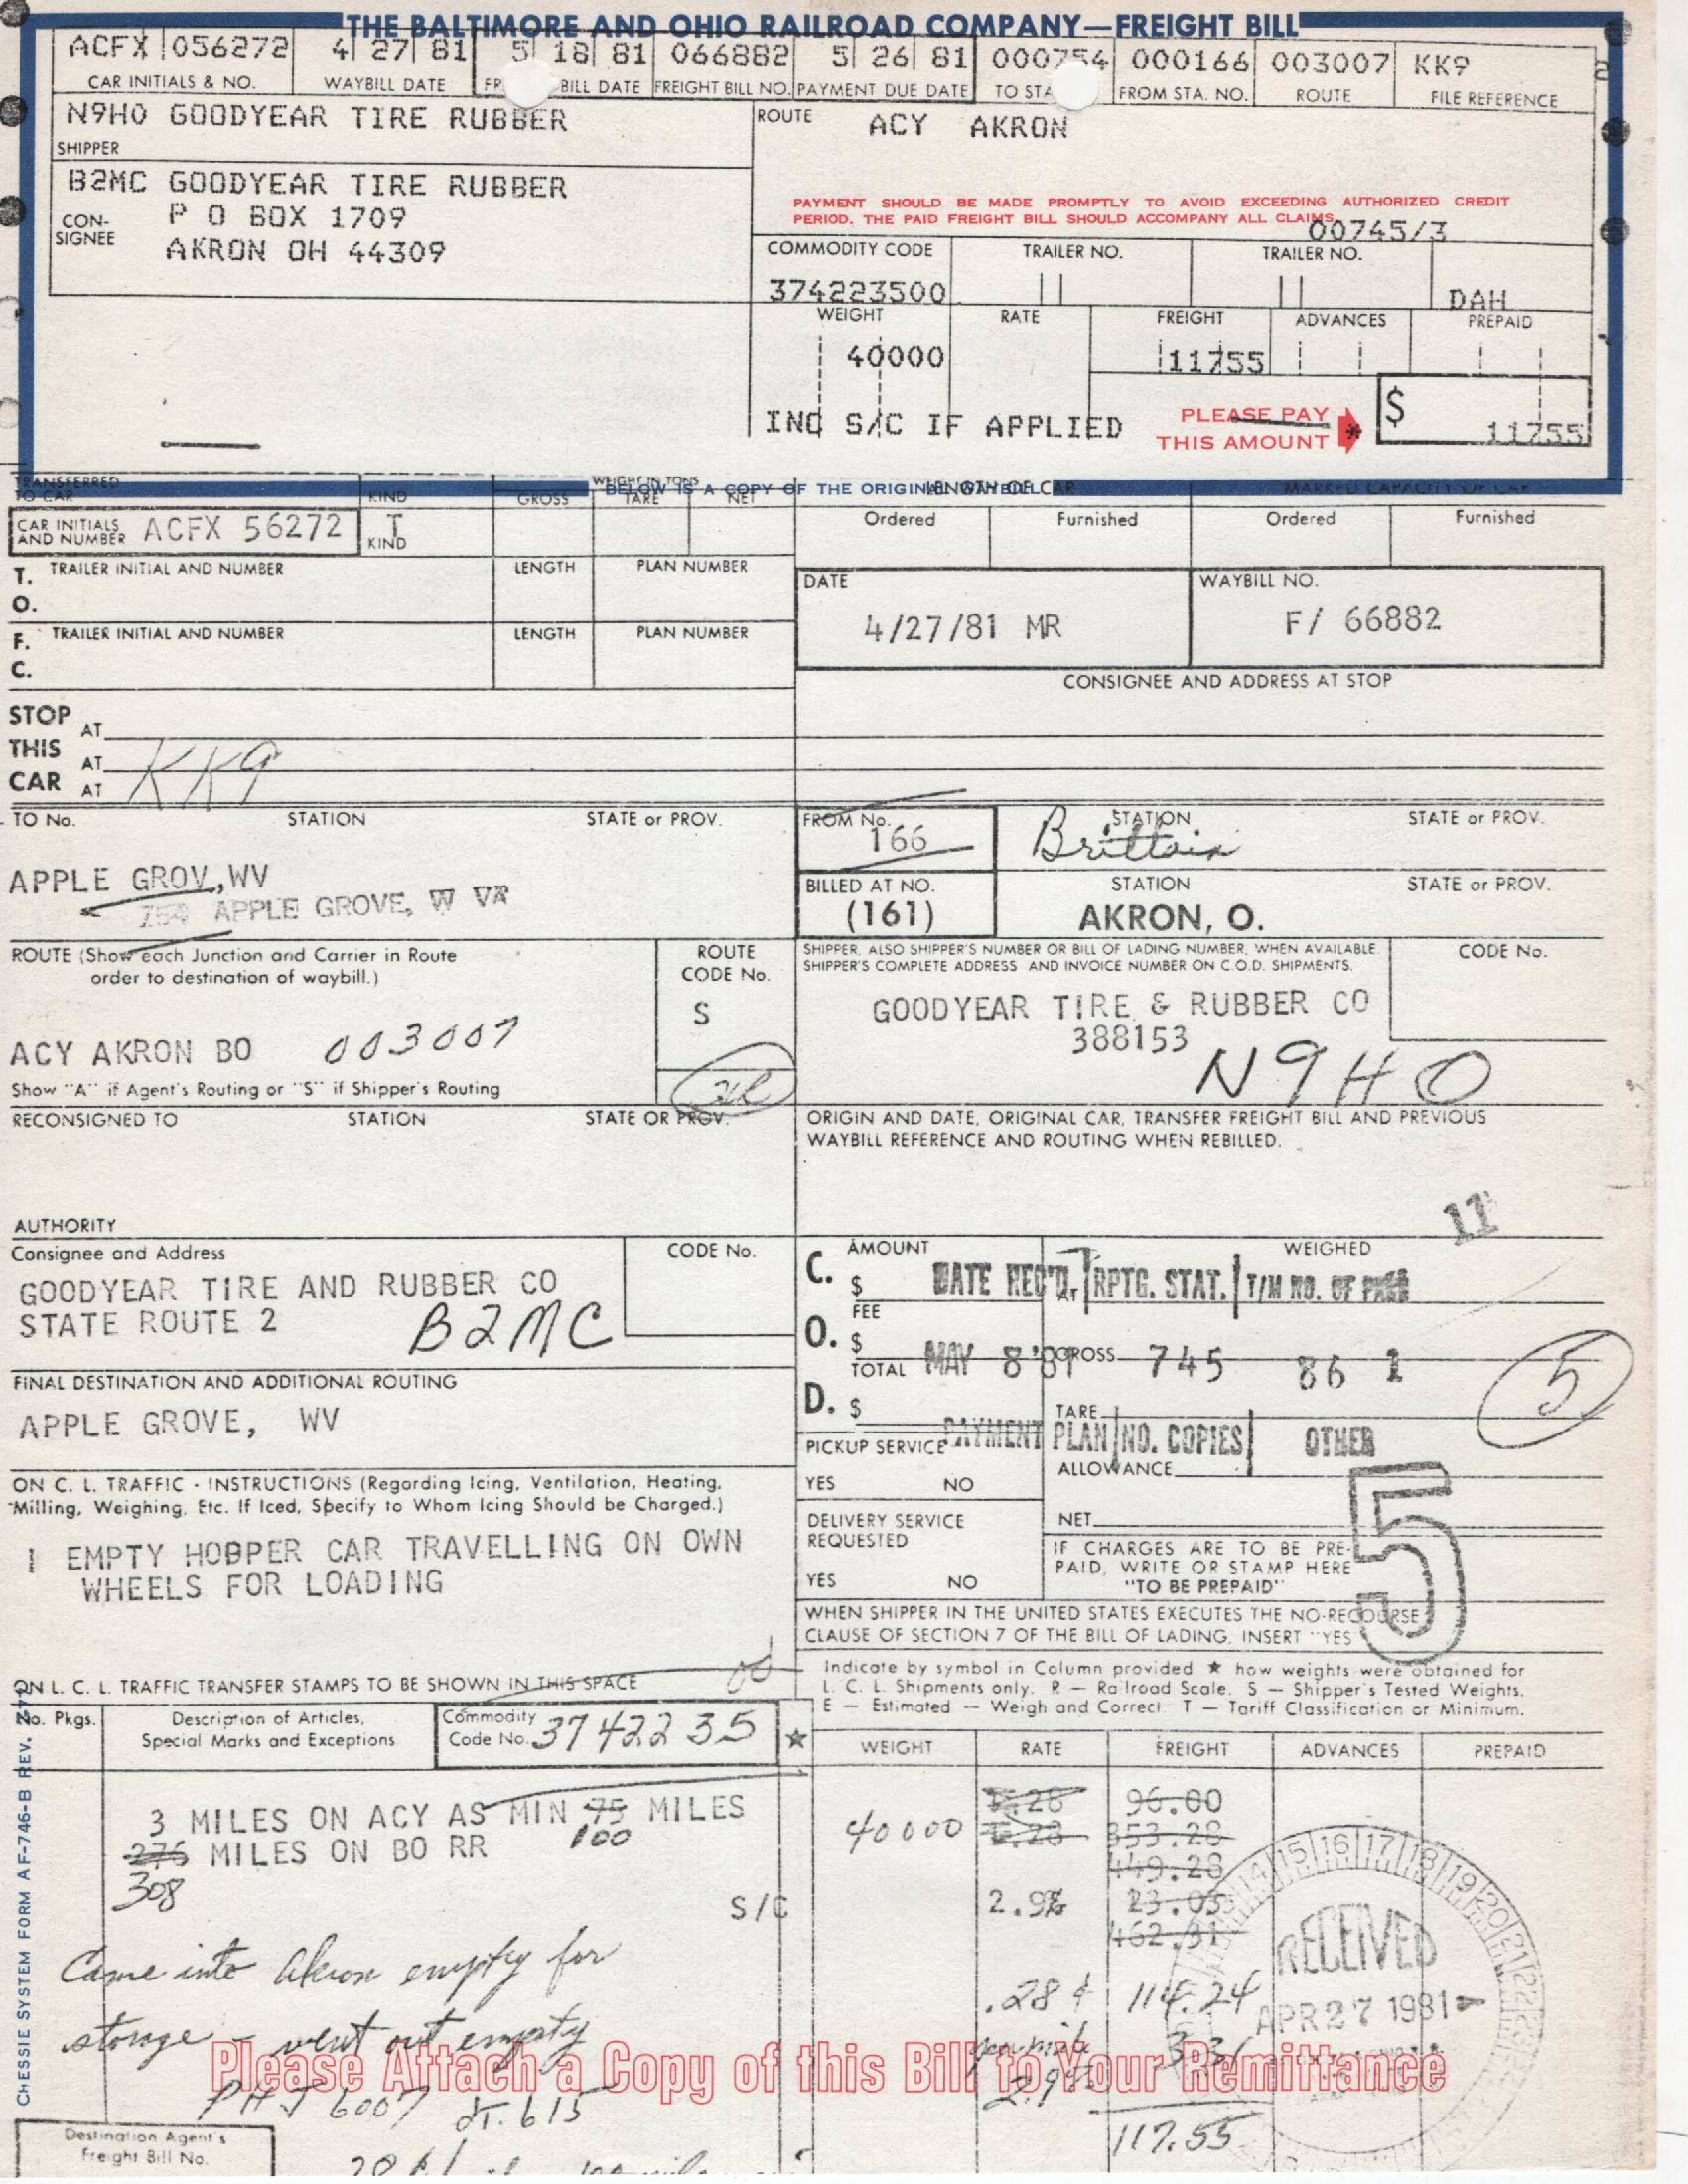 THE BALTIMORE AND OHIO RAILROAD COMPANY—FREIGHT BILL
ACFX 056272 4 27 81 5 18 81 066882 5 26 81 000754 000166 003007 KK9
CAR INITIALS & NO. WAYBILL DATE BILL DATE FREIGHT BILL NO. PAYMENT DUE DATE TO STA FROM STA. NO. ROUTE FILE REFERENCE
N9HO GOODYEAR TIRE RUBBER
SHIPPER
ROUTE ACY AKRON
B2MC GOODYEAR TIRE RUBBER
P O BOX 1709
AKRON OH 44309
CON-
SIGNEE
PAYMENT SHOULD BE MADE PROMPTLY TO AVOID EXCEEDING AUTHORIZED CREDIT
PERIOD. THE PAID FREIGHT BILL SHOULD ACCOMPANY ALL CLAIMS.
00745/3
COMMODITY CODE TRAILER NO. TRAILER NO.
374223500 DAH
WEIGHT RATE FREIGHT ADVANCES PREPAID
40000 11755
INC S/C IF APPLIED
PLEASE PAY
THIS AMOUNT
* $ 11755
BELOW IS A COPY OF THE ORIGINAL WAYBILL
TRANSFERRED
TO CAR
KIND
WEIGHT IN TONS
GROSS TARE NET
LENGTH OF CAR
MARKED CAPACITY OF CAR
CAR INITIALS
AND NUMBER ACFX 56272
T
KIND
Ordered Furnished Ordered Furnished
T. O. F. C.
TRAILER INITIAL AND NUMBER LENGTH PLAN NUMBER
TRAILER INITIAL AND NUMBER LENGTH PLAN NUMBER
DATE
4/27/81 MR
WAYBILL NO.
F/ 66882
CONSIGNEE AND ADDRESS AT STOP
STOP AT
THIS AT KK9
CAR AT
TO No. STATION STATE or PROV.
APPLE GROV,WV
754 APPLE GROVE, W VA
FROM No. STATION STATE or PROV.
166 Brittain
BILLED AT NO. STATION STATE or PROV.
(161) AKRON, O.
ROUTE (Show each Junction and Carrier in Route
order to destination of waybill.)
ROUTE
CODE No.
S
ACY AKRON BO 003007
Show "A" if Agent's Routing or "S" if Shipper's Routing
SHIPPER, ALSO SHIPPER'S NUMBER OR BILL OF LADING NUMBER, WHEN AVAILABLE.
SHIPPER'S COMPLETE ADDRESS AND INVOICE NUMBER ON C.O.D. SHIPMENTS.
CODE No.
GOODYEAR TIRE & RUBBER CO
388153
N9HO
RECONSIGNED TO STATION STATE OR PROV.
ORIGIN AND DATE, ORIGINAL CAR, TRANSFER FREIGHT BILL AND PREVIOUS
WAYBILL REFERENCE AND ROUTING WHEN REBILLED.
AUTHORITY
11
Consignee and Address CODE No.
GOODYEAR TIRE AND RUBBER CO
STATE ROUTE 2
B2MC
C. O. D.
AMOUNT
$
FEE
$
TOTAL
$
WEIGHED
AT
GROSS
TARE
ALLOWANCE
NET
DATE REC'D. RPTG. STAT. T/M NO. OF PAGE
MAY 8 '81 745 86 1
PAYMENT PLAN NO. COPIES OTHER
5
5
FINAL DESTINATION AND ADDITIONAL ROUTING
APPLE GROVE, WV
PICKUP SERVICE
YES NO
ON C. L. TRAFFIC - INSTRUCTIONS (Regarding Icing, Ventilation, Heating,
Milling, Weighing, Etc. If Iced, Specify to Whom Icing Should be Charged.)
1 EMPTY HOBPER CAR TRAVELLING ON OWN
WHEELS FOR LOADING
DELIVERY SERVICE
REQUESTED
YES NO
IF CHARGES ARE TO BE PRE-
PAID, WRITE OR STAMP HERE
"TO BE PREPAID"
WHEN SHIPPER IN THE UNITED STATES EXECUTES THE NO-RECOURSE
CLAUSE OF SECTION 7 OF THE BILL OF LADING, INSERT "YES"
ON L. C. L. TRAFFIC TRANSFER STAMPS TO BE SHOWN IN THIS SPACE
Indicate by symbol in Column provided ★ how weights were obtained for
L. C. L. Shipments only. R — Railroad Scale. S — Shipper's Tested Weights.
E — Estimated — Weigh and Correct. T — Tariff Classification or Minimum.
No. Pkgs. Description of Articles,
Special Marks and Exceptions
Commodity
Code No. 3742235
★ WEIGHT RATE FREIGHT ADVANCES PREPAID
3 MILES ON ACY AS MIN 75 MILES
100
276 MILES ON BO RR
308
40000
96.00
353.28
449.28
S/C 2.9% 23.03
462.31
Came into Akron empty for
storage - went out empty
PHJ 6007 dt. 615
.28¢ 114.24
per mile 3.31
2.9%
117.55
RECEIVED
APR 27 1981
14 15 16 17 18 19 20 21 22 23
Please Attach a Copy of this Bill to Your Remittance
Destination Agent's
Freight Bill No.
CHESSIE SYSTEM FORM AF-746-B REV.